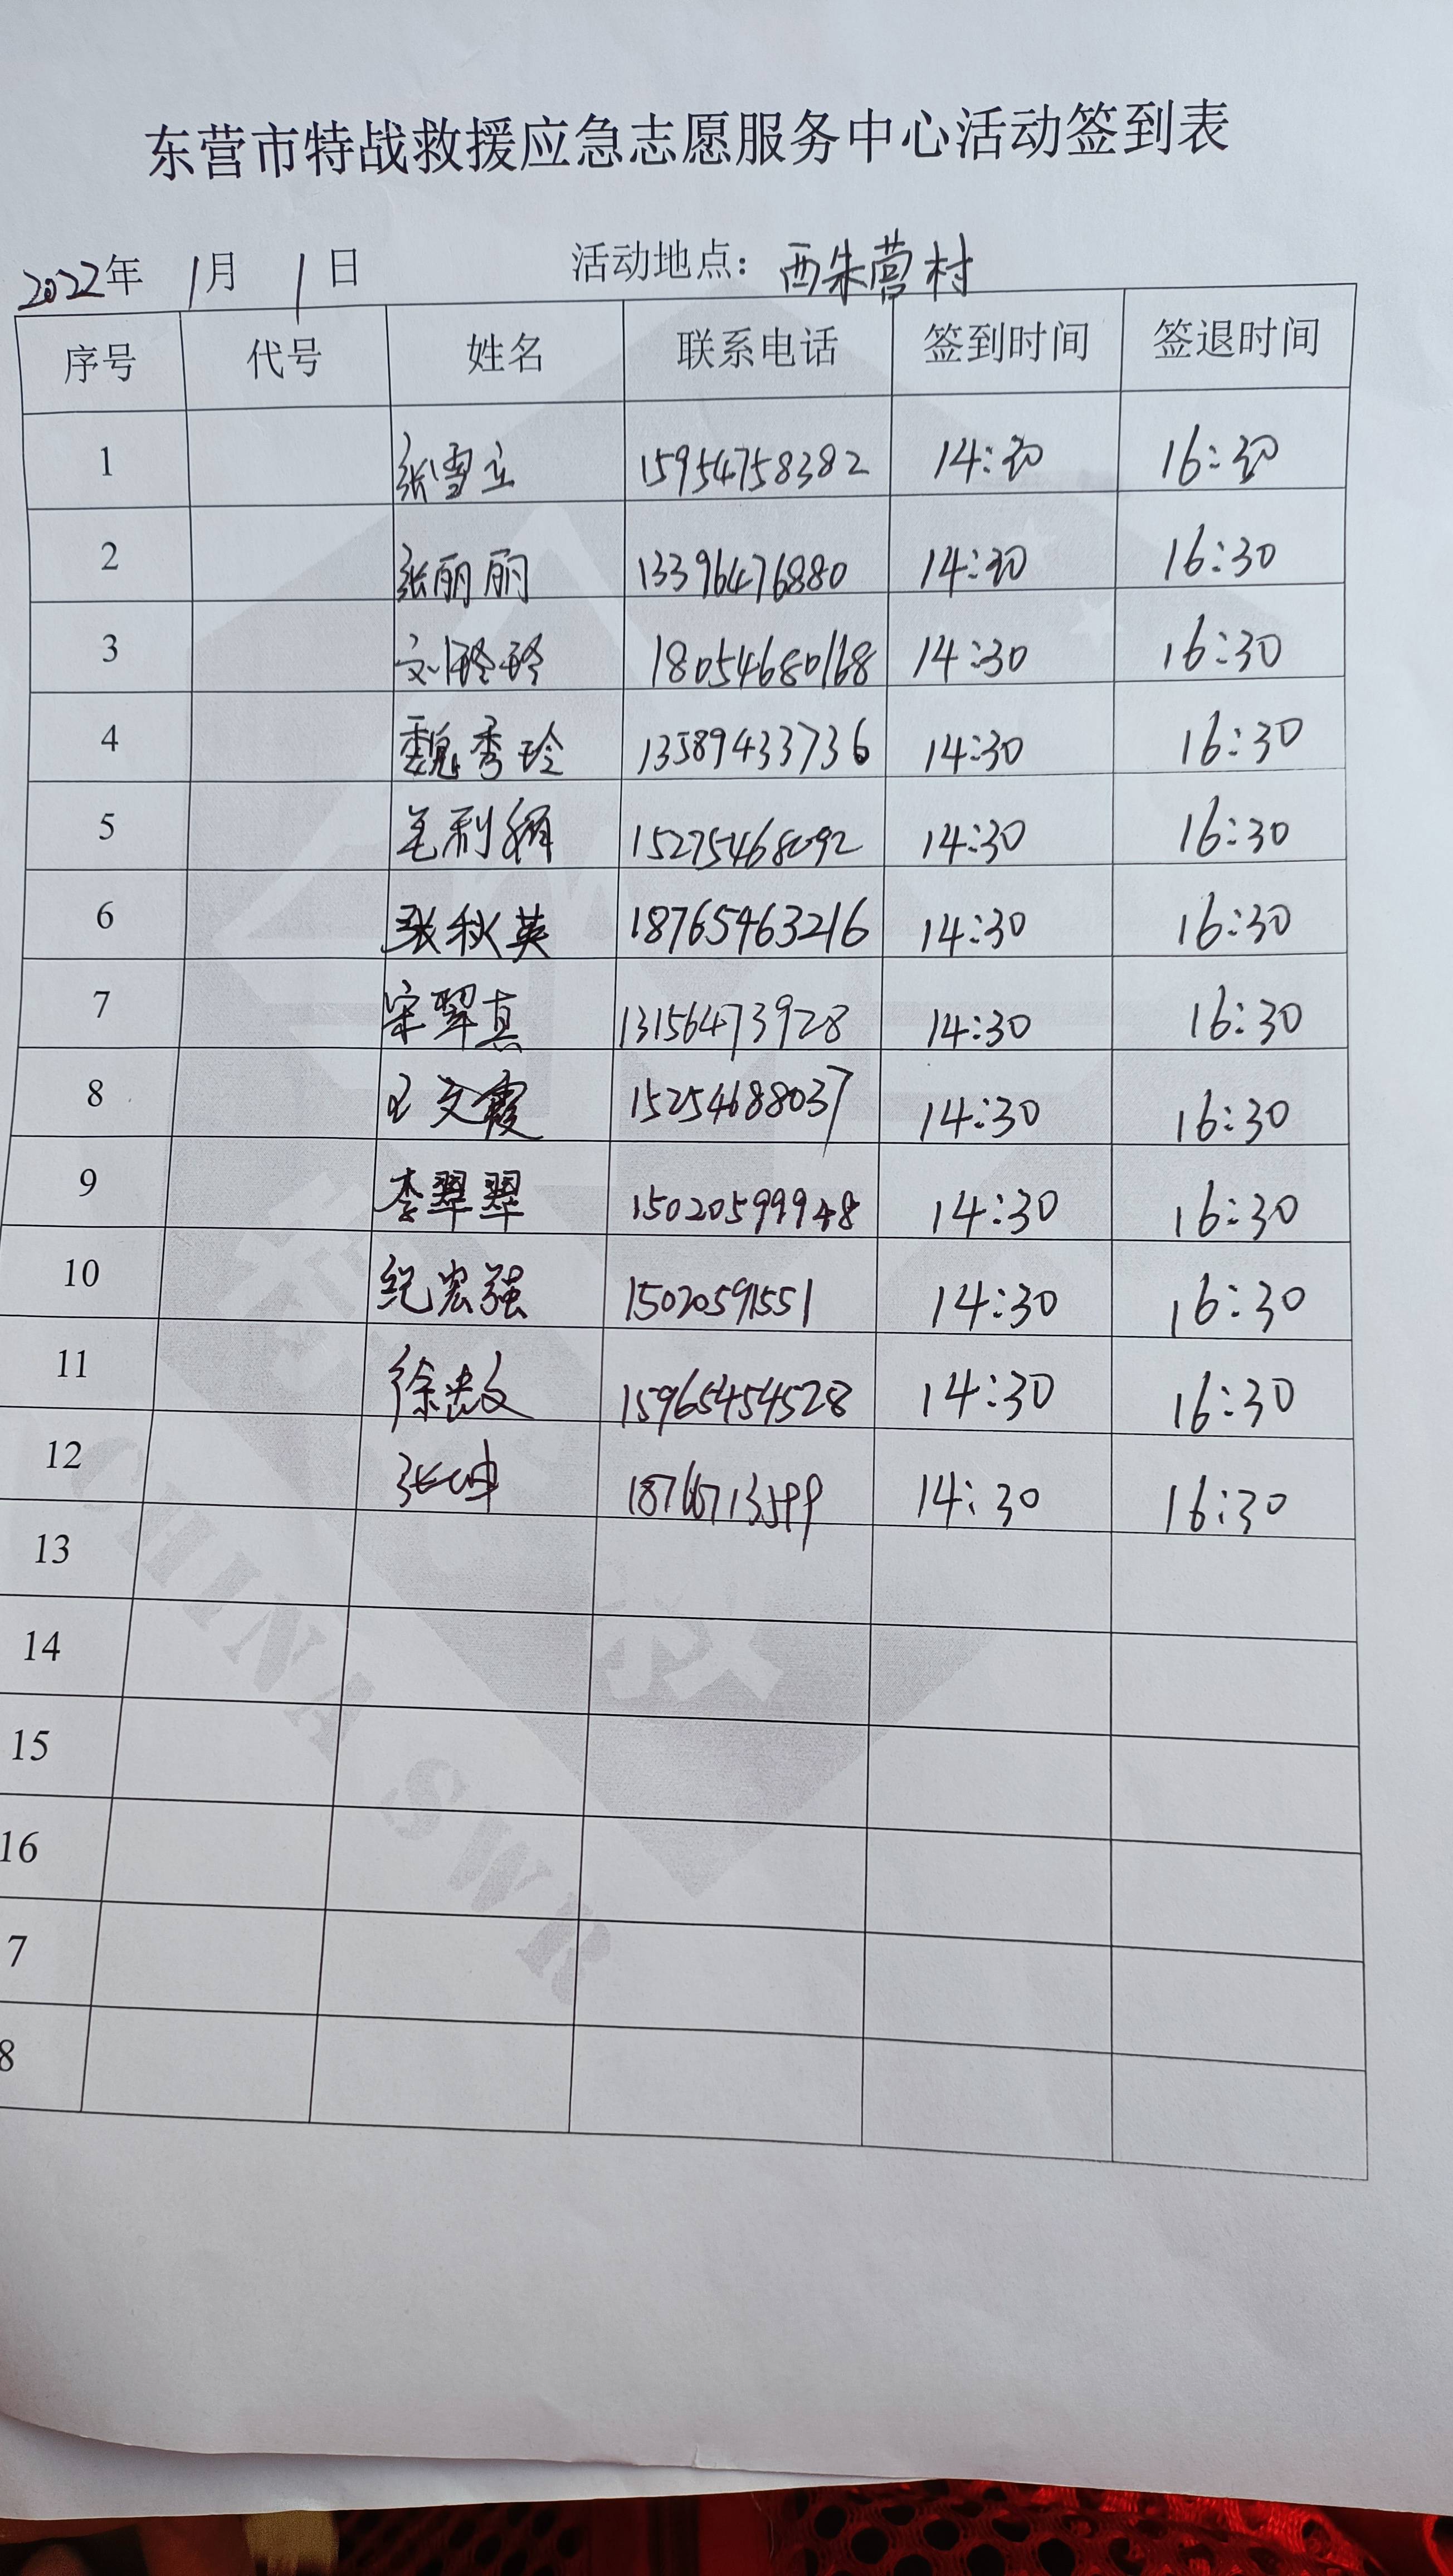 东营市特战救援应急志愿服务中心活动签到表
2022年 1月 1日 活动地点：西朱营村
序号 代号 姓名 联系电话 签到时间 签退时间
1 张雪立 15954758382 14:30 16:30
2 张丽丽 13396476880 14:30 16:30
3 刘玲玲 18054680168 14:30 16:30
4 魏秀玲 13589433736 14:30 16:30
5 毛利 15275468092 14:30 16:30
6 张秋英 18765463216 14:30 16:30
7 宋翠真 13156473928 14:30 16:30
8 王文霞 15254688037 14:30 16:30
9 李翠翠 15020599948 14:30 16:30
10 纪宏强 15020591551 14:30 16:30
11 徐 15965454528 14:30 16:30
12 张坤 18766713599 14:30 16:30
13
14
15
16
7
8
CHINA SWR